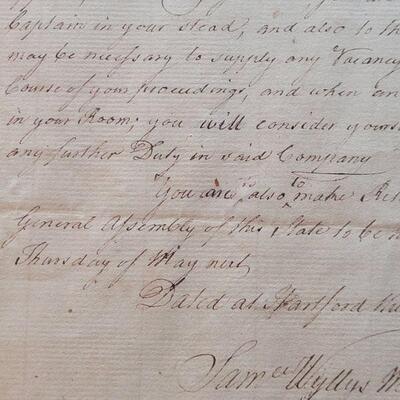 Captain in your stead, and also to th
may be necessary to supply any Vacancy
Course of your proceedings, and when an
in your Room; you will consider yours
any further Duty in said Company
You are also to make Ret
General Assembly of this State to be
Thursday of May next,
Dated at Hartford
Samel Wyllys